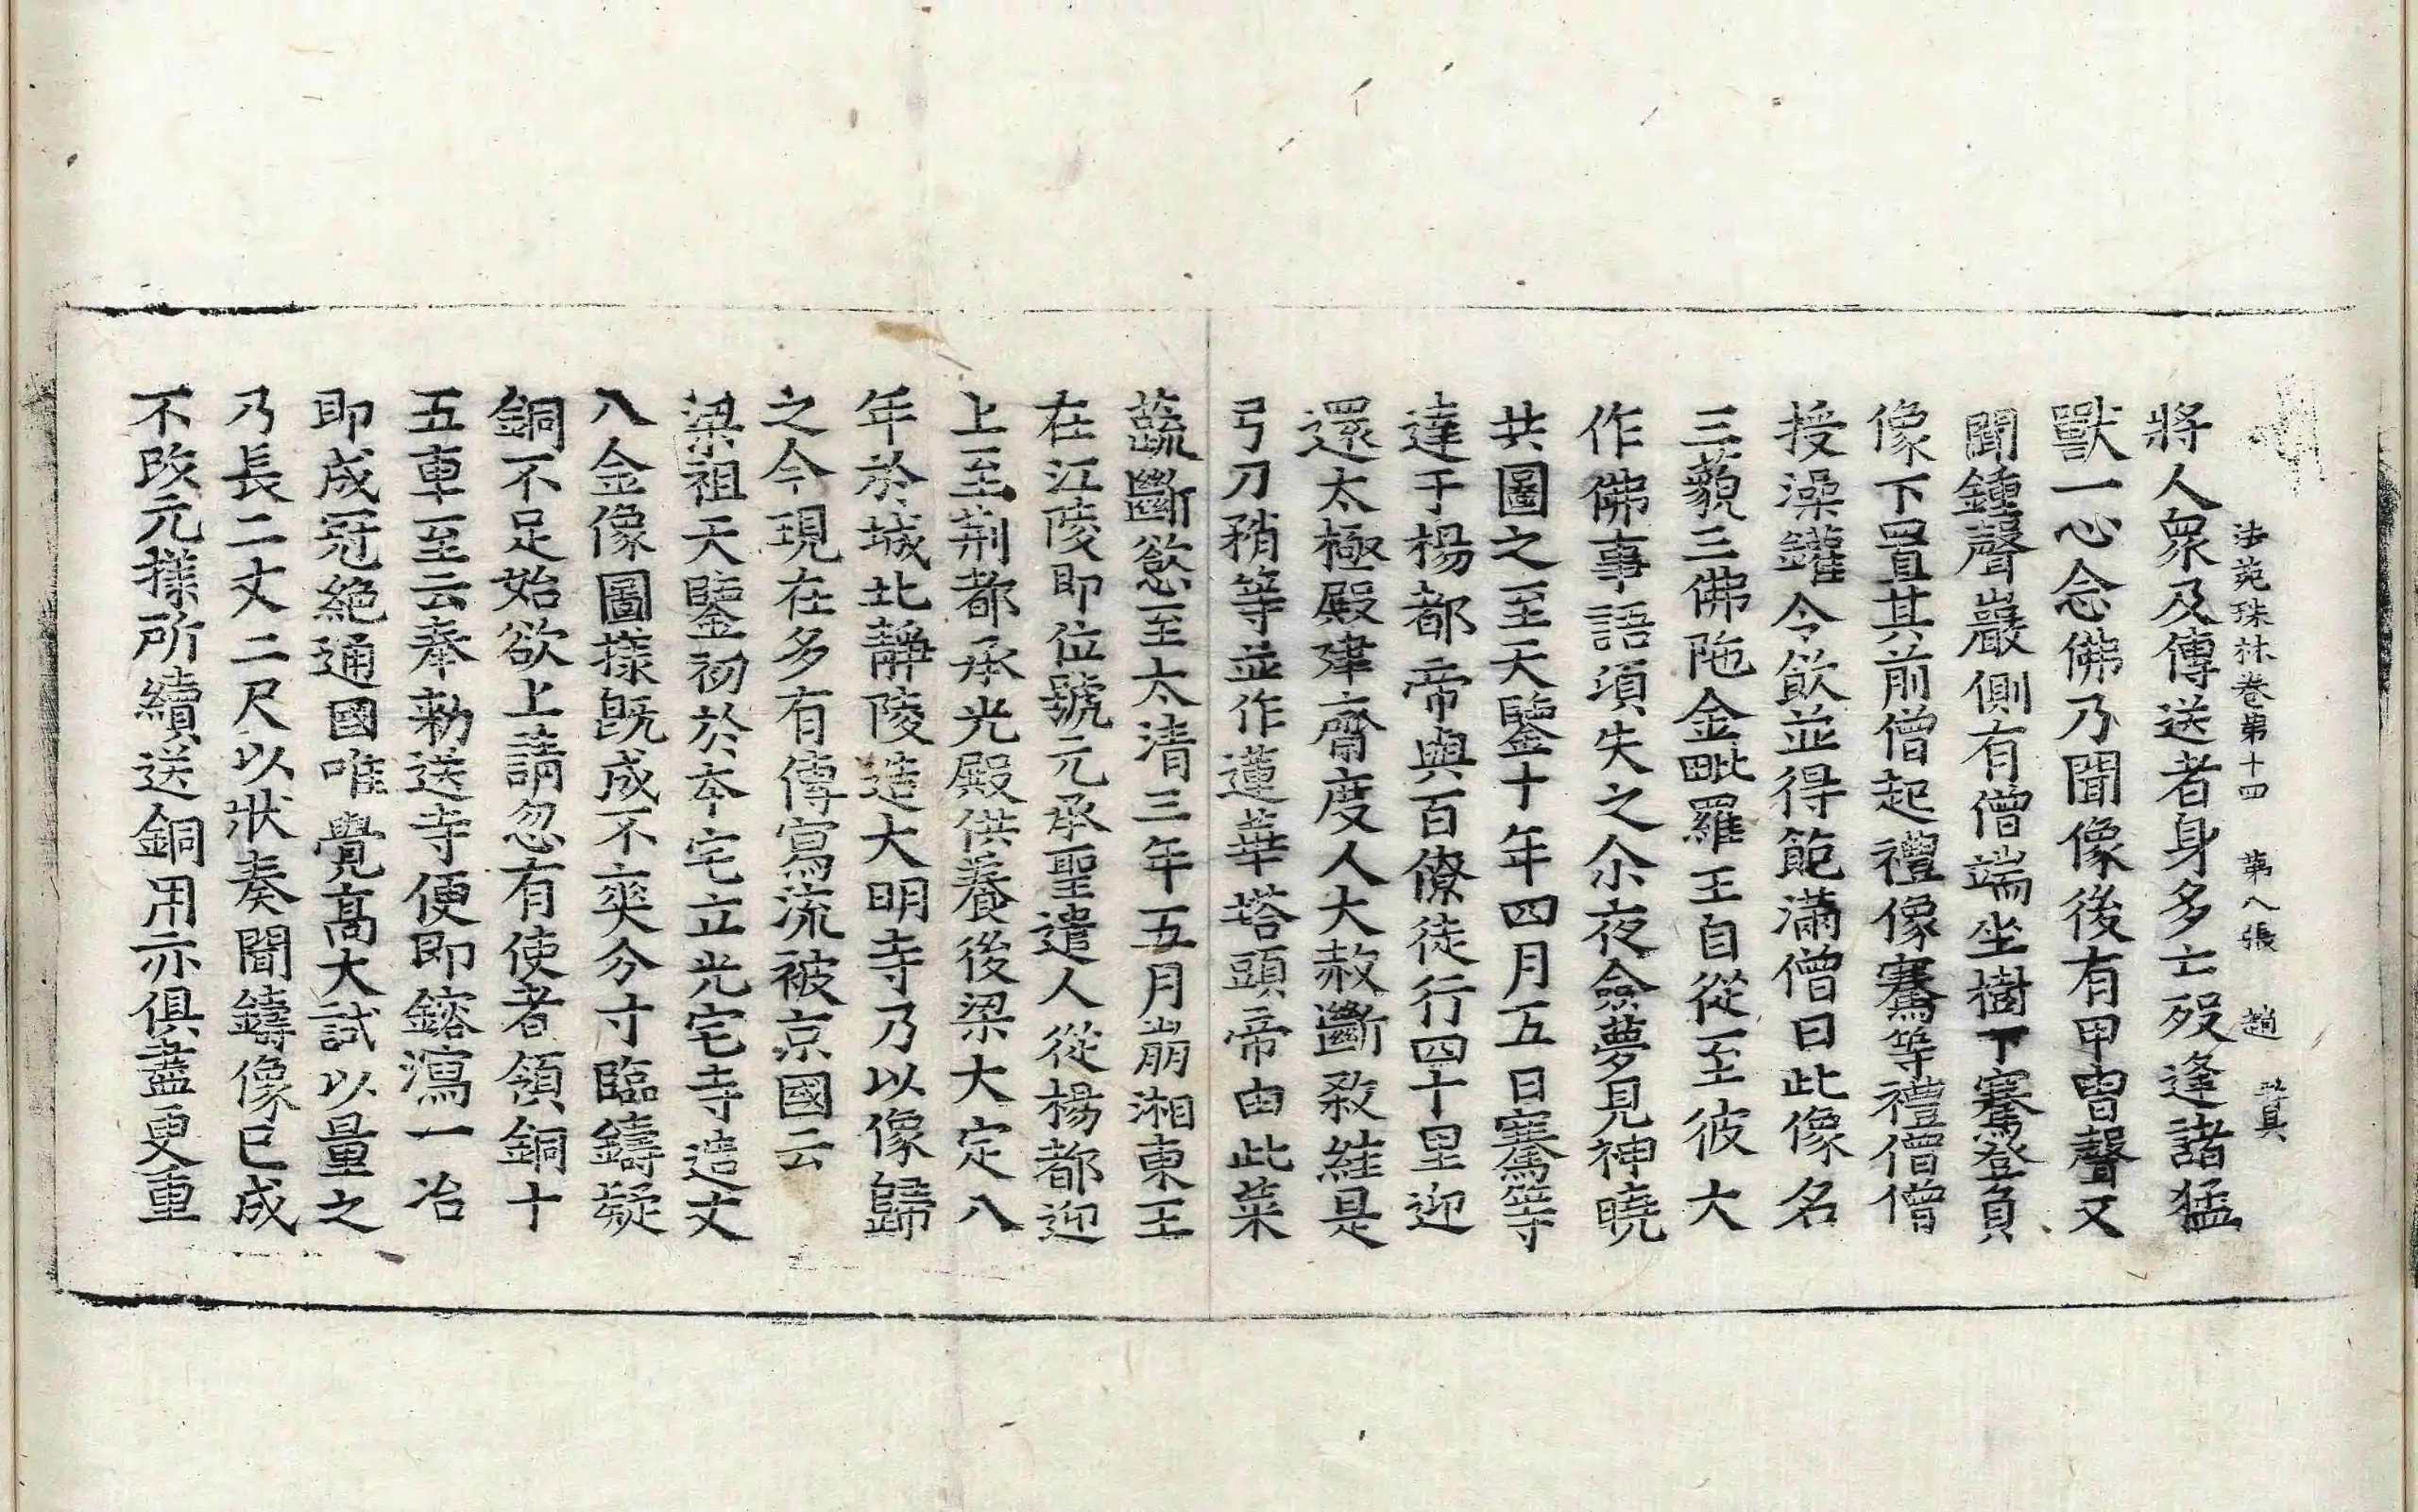 法苑珠林卷第十四 第八張 趙
將人衆及傳送者身多亡歿逢諸猛
獸一心念佛乃聞像後有甲冑聲又
聞鍾聲巖側有僧端坐樹下騫登負
像下置其前僧起禮像騫等禮僧僧
授澡鑵令飲並得飽滿僧曰此像名
三藐三佛陁金毗羅王自從至彼大
作佛事語須失之尒夜僉夢見神曉
共圖之至天鑒十年四月五日騫等
達于楊都帝與百僚徒行四十里迎
還太極殿建齋度人大赦斷殺絓是
弓刀矟等並作蓮華塔頭帝由此菜
蔬斷慾至太清三年五月崩湘東王
在江陵即位號元承聖遣人從楊都迎
上至荆都承光殿供養後梁大定八
年於城北靜陵造大明寺乃以像歸
之今現在多有傳寫流被京國云
梁祖天鑒初於本宅立光宅寺造丈
八金像圖㨾旣成不爽分寸臨鑄疑
銅不足始欲上請忽有使者領銅十
五車至云奉勑送寺便即鎔瀉一冶
即成冠絶通國唯覺髙大試以量之
乃長二丈二尺以狀奏聞鑄像已成
不改元㨾所續送銅用亦俱盡更重